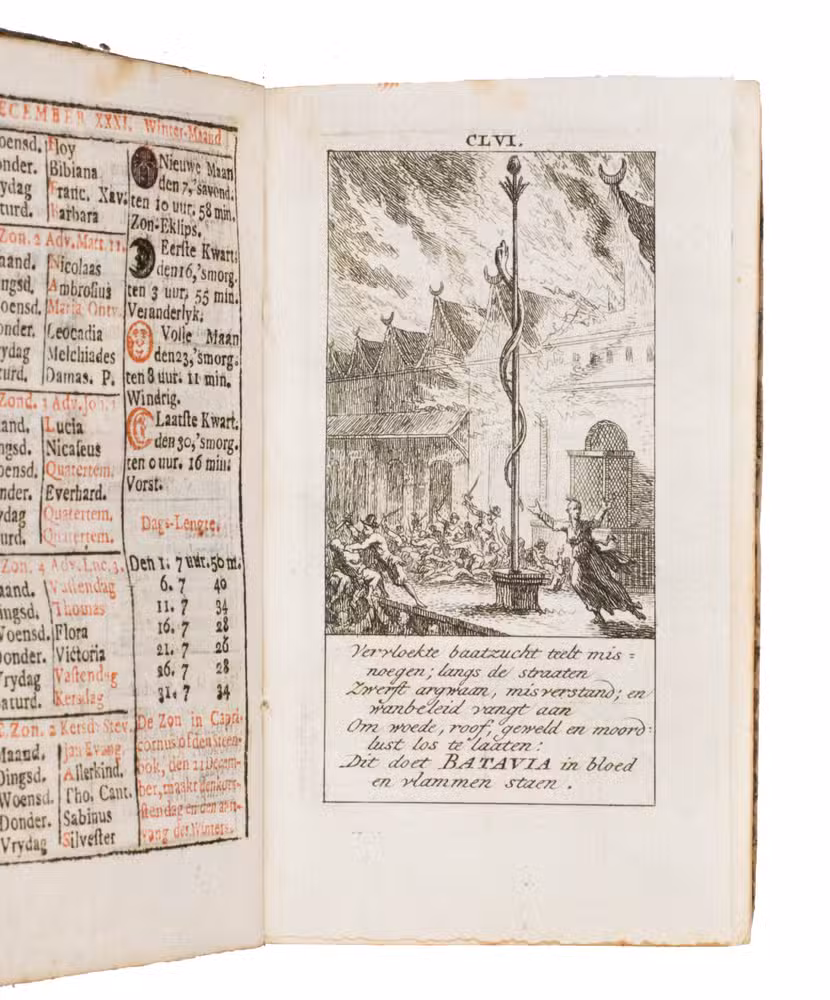 DECEMBER XXXI. Winter-Maand
Hoy
Bibiana
Franc. Xav.
Barbara
Zon. 2 Adv. Matt. 11.
Nicolaas
Ambrosius
Maria Ontv.
Leocadia
Vrydag Melchiades
Damas. P.
Zond. 3 Adv. Joh. 1
Lucia
Nicaseus
Quatertem.
Everhard.
Quatertem.
Quatertem.
Zon. 4 Adv. Luc. 3.
Vastendag
Dingsd. Thomas
Woensd. Flora
Donder. Victoria
Vrydag Vastendag
Saturd. Kersdag
Zon. 2 Kersd. Stev.
Maand. Jan Evang.
Dingsd. Allerkind.
Woensd. Tho. Cant.
Donder. Sabinus
Vrydag Silvester
Nieuwe Maan
den 7, 'savond.
ten 10 uur. 58 min.
Zon-Eklips.
Eerste Kwart.
den 16, 'smorg.
ten 3 uur. 55 min.
Veranderlyk.
Volle Maan
den 23, 'smorg.
ten 8 uur. 11 min.
Windrig.
Laatste Kwart.
den 30, 'smorg.
ten 0 uur. 16 min.
Vorst.
Dags-Lengte.
Den 1. 7 uur. 50 m.
6. 7 40
11. 7 34
16. 7 28
21. 7 26
26. 7 28
31. 7 34
De Zon in Capri-
cornus of den Steen-
bok, den 21 Decem-
ber, maakt den kort-
sten dag en den aan-
vang des Winters.
CLVI.
Vervloekte baatzucht teelt mis=
noegen; langs de straaten
Zwerft argwaan, misverstand; en
wanbeleid vangt aan
Om woede, roof, geweld en moord=
lust los te laaten:
Dit doet BATAVIA in bloed
en vlammen staen.